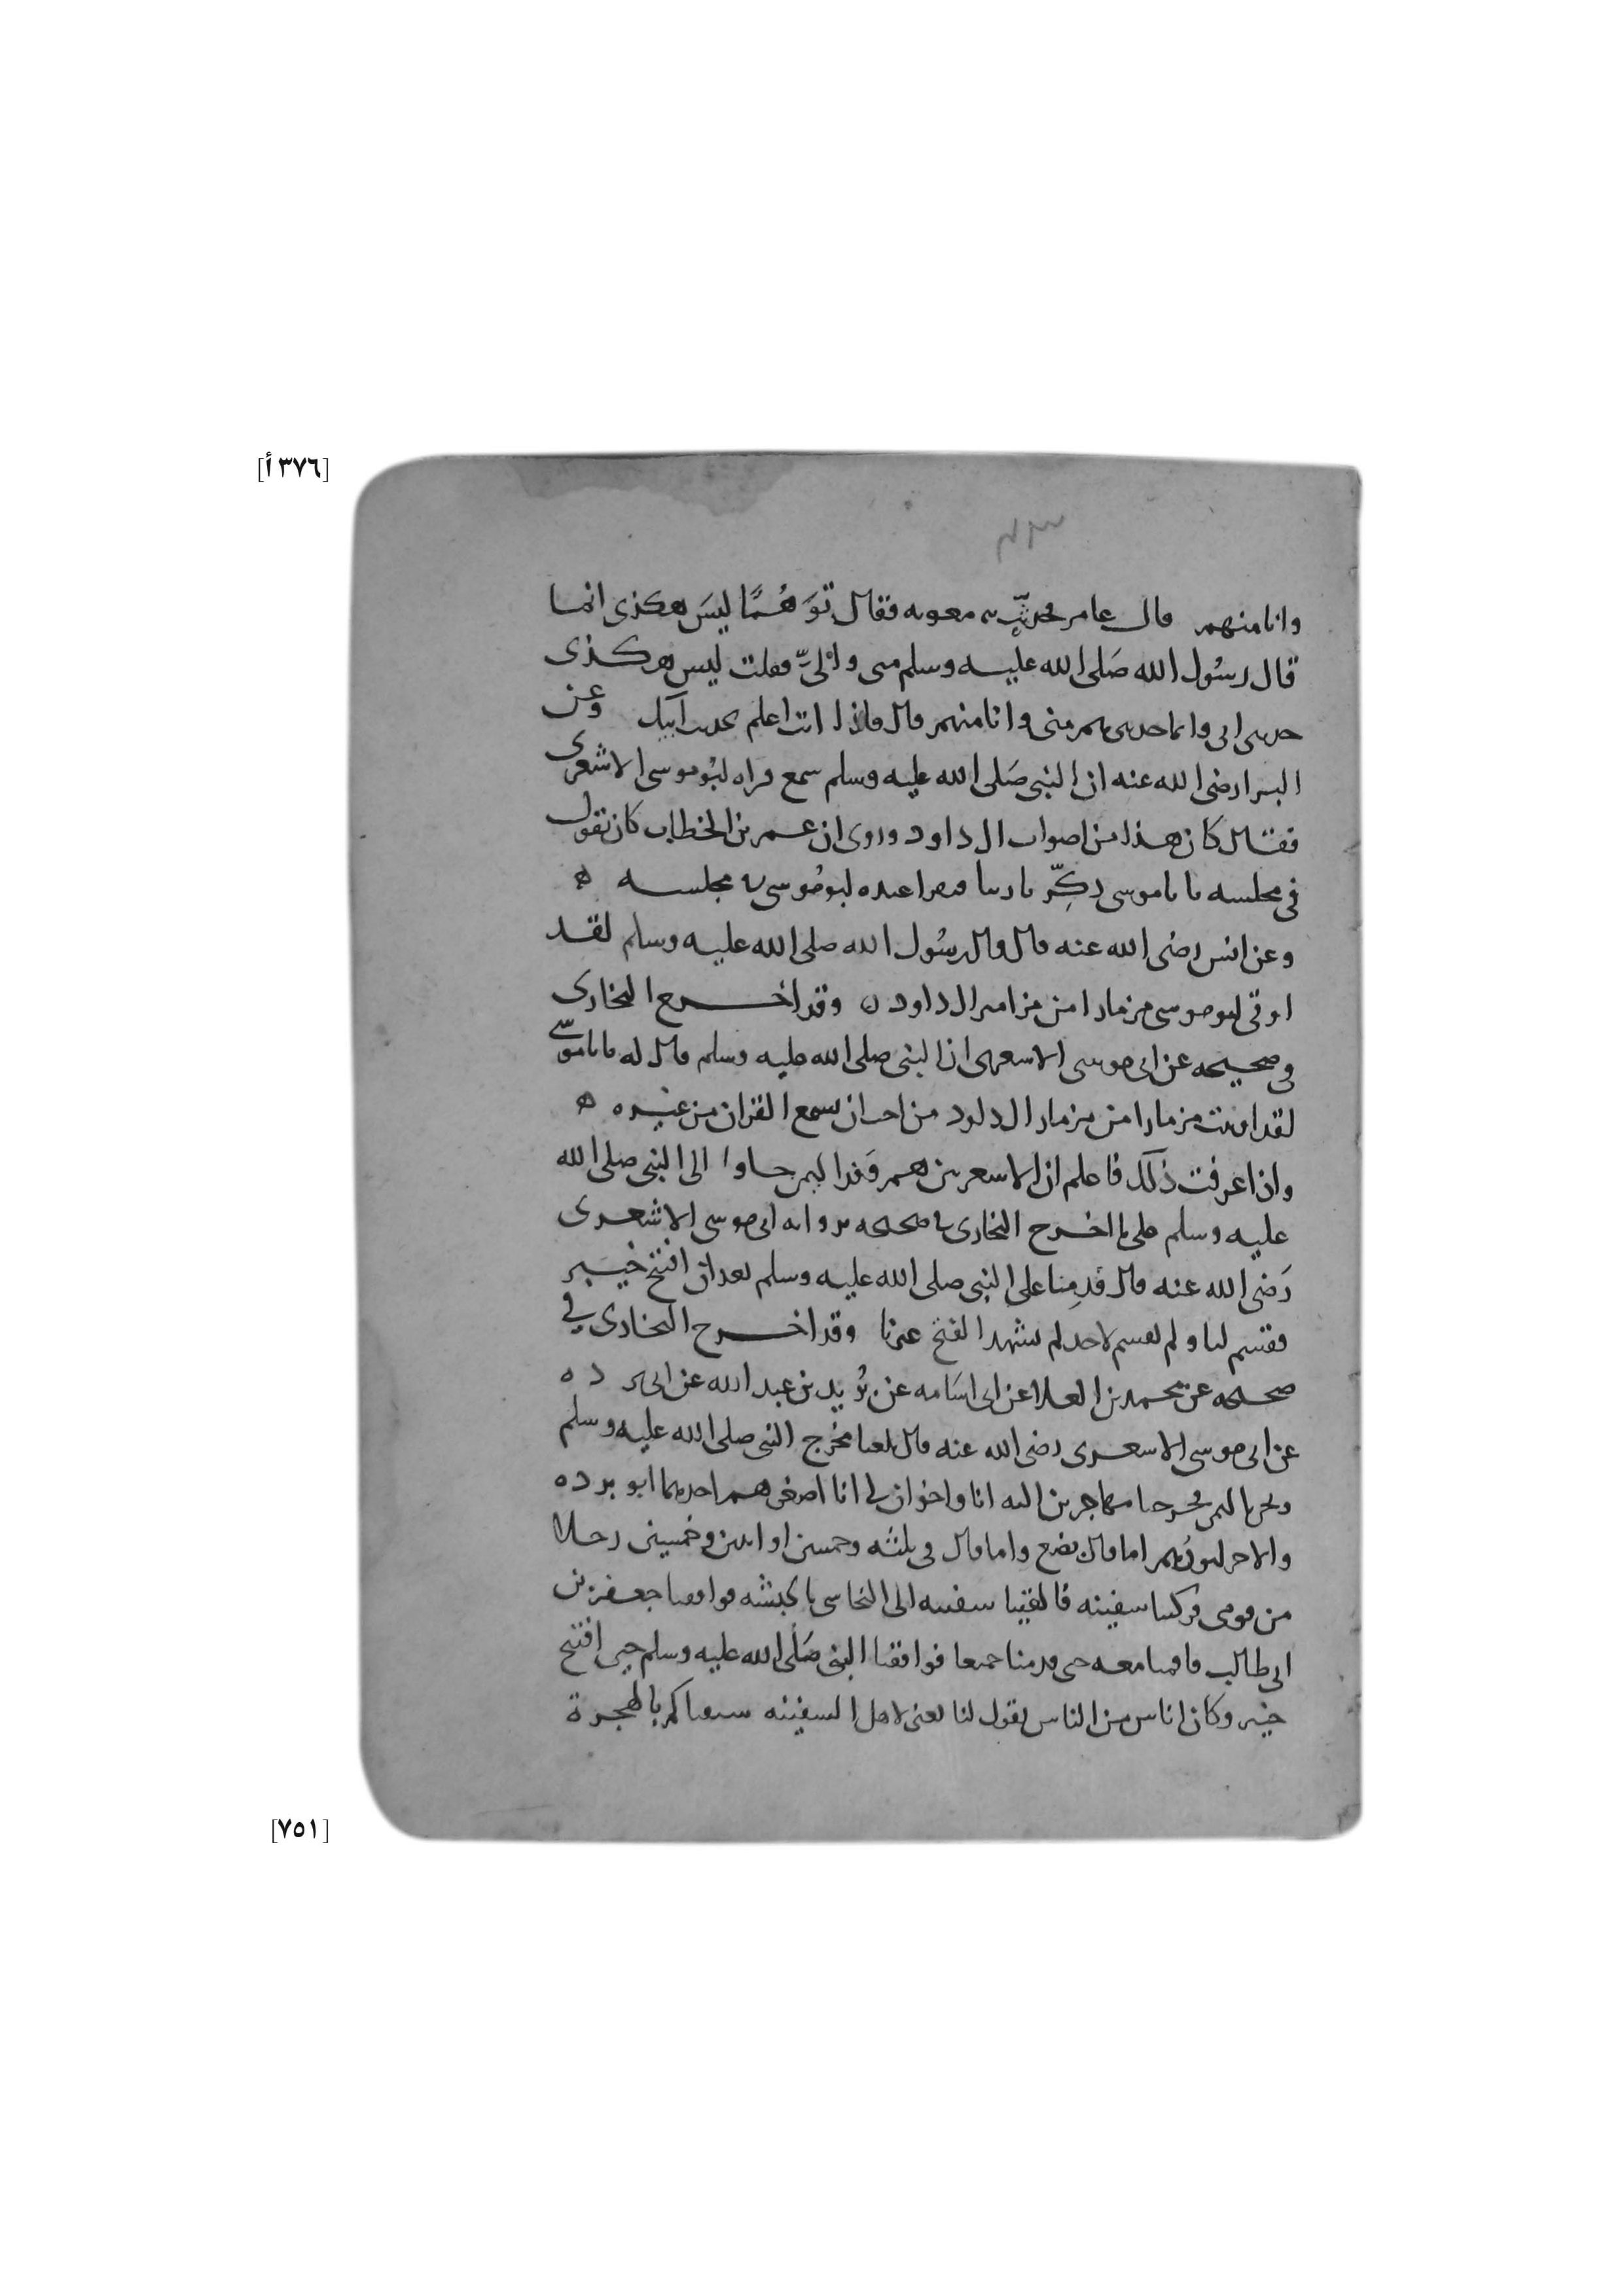 [٣٧٦ أ]
وانا منهم قال عامر فحدثت به معويه فقال توهمًا ليس هكذى انما
قال رسول الله صلى الله عليه وسلم منى والىّ فقلت ليس هكذى
حدثنى ابى وانما حدثنى هم منى وانا منهم قال فاذا انت اعلم بحديث ابيك وعن
البرا رضى الله عنه ان النبى صلى الله عليه وسلم سمع قراه ابو موسى الاشعرى
فقال كان هذا من اصوات ال داود وروى ان عمر بن الخطاب كان يقول
فى مجلسه يا با موسى ذكّر يا ربنا فيقرا عنده ابو موسى فى مجلسه ه
وعن انس رضى الله عنه قال قال رسول الله صلى الله عليه وسلم لقد
اوتى ابو موسى مزمارا من مزامير ال داود ن وقد اخرج البخارى
فى صحيحه عن ابى موسى الاشعرى ان النبى صلى الله عليه وسلم قال له يا با موسى
لقد اوتيت مزمارا من مزمار ال داود من احب ان يسمع القران من غيره ه
واذا عرفت ذلك فاعلم ان الاشعرين هم وفد اليمن جاوا الى النبى صلى الله
عليه وسلم على ما اخرج البخارى فى صحيحه بروايه ابى موسى الاشعرى
رضى الله عنه قال قدمنا على النبى صلى الله عليه وسلم بعد ان افتتح خيبر
فقسم لنا ولم يقسم لاحد لم يشهد الفتح غيرنا وقد اخرج البخارى فى
صحيحه عن محمد بن العلا عن ابى اسامه عن بُريد بن عبد الله عن ابى برده
عن ابى موسى الاشعرى رضى الله عنه قال بلغنا مخرج النبى صلى الله عليه وسلم
ونحن باليمن فخرجنا مهاجرين اليه انا واخوان لى انا اصغرهم احدهما ابو برده
والاخر ابو رُهم اما قال بضع واما قال فى ثلثه وخمسين او اثنين وخمسين رجلا
من قومى فركبنا سفينه فالقتنا سفينه الى النجاشى بالحبشه فوافقنا جعفر بن
ابى طالب فاقمنا معه حتى قدمنا جميعا فوافقنا النبى صلى الله عليه وسلم حين افتتح
خيبر وكان اناس من الناس يقول لنا يعنى لاهل السفينه سبقناكم بالهجرة
[٧٥١]